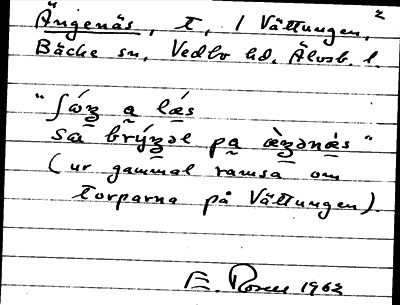 Ängenäs, t, / Vättungen, 2
Bäcke sn, Vedbo hd, Älvsb. l.
"ʃǿʒ a læs
sa brýʒəl pa æ̀ʒənæs"
(ur gammal ramsa om
torparna på Vättungen).
E. Rosell 1963